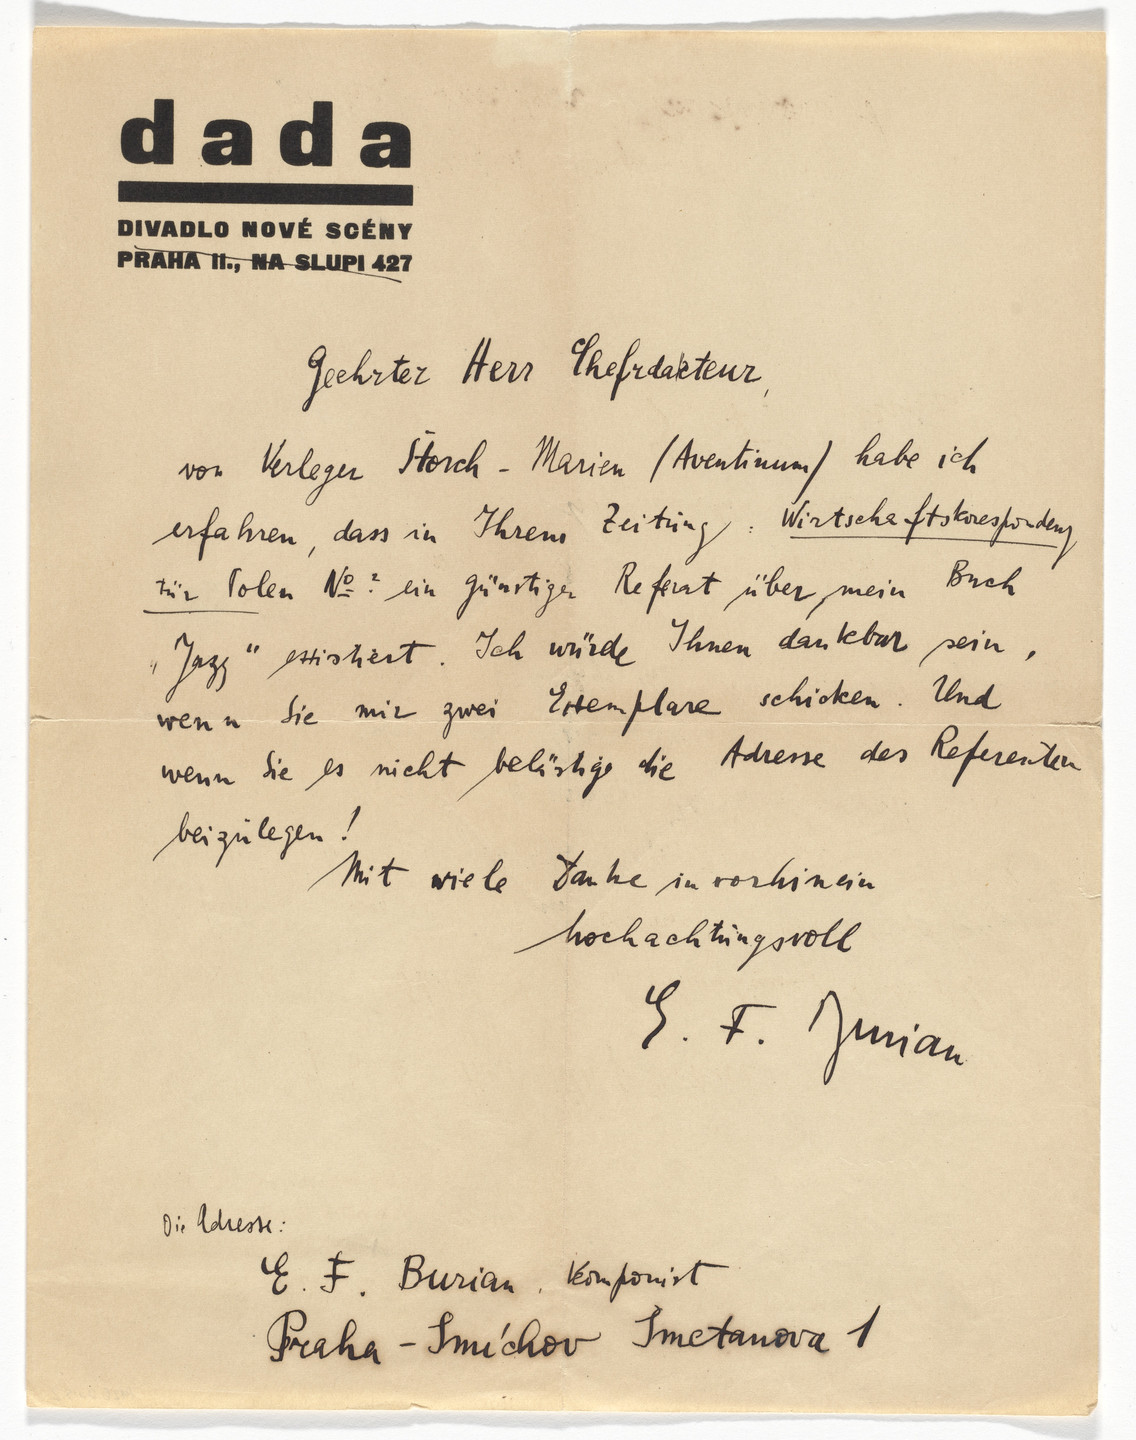 dada
DIVADLO NOVÉ SCÉNY
PRAHA II., NA SLUPI 427
Geehrter Herr Chefrdakteur,
von Verleger Štorch - Marien (Aventinum) habe ich
erfahren, dass in Ihrem Zeitung: Wirtschaftskorespondenz
für Polen No ? ein günstiger Referat über mein Buch
„Jazz" existiert. Ich würde Ihnen dankbar sein,
wenn Sie mir zwei Exemplare schicken. Und
wenn Sie es nicht belästige die Adresse des Referenten
beizulegen!
Mit viele Danke in vorhinein
hochachtungsvoll
E. F. Burian
Die Adresse:
E. F. Burian, Komponist
Praha - Smíchov Smetanova 1